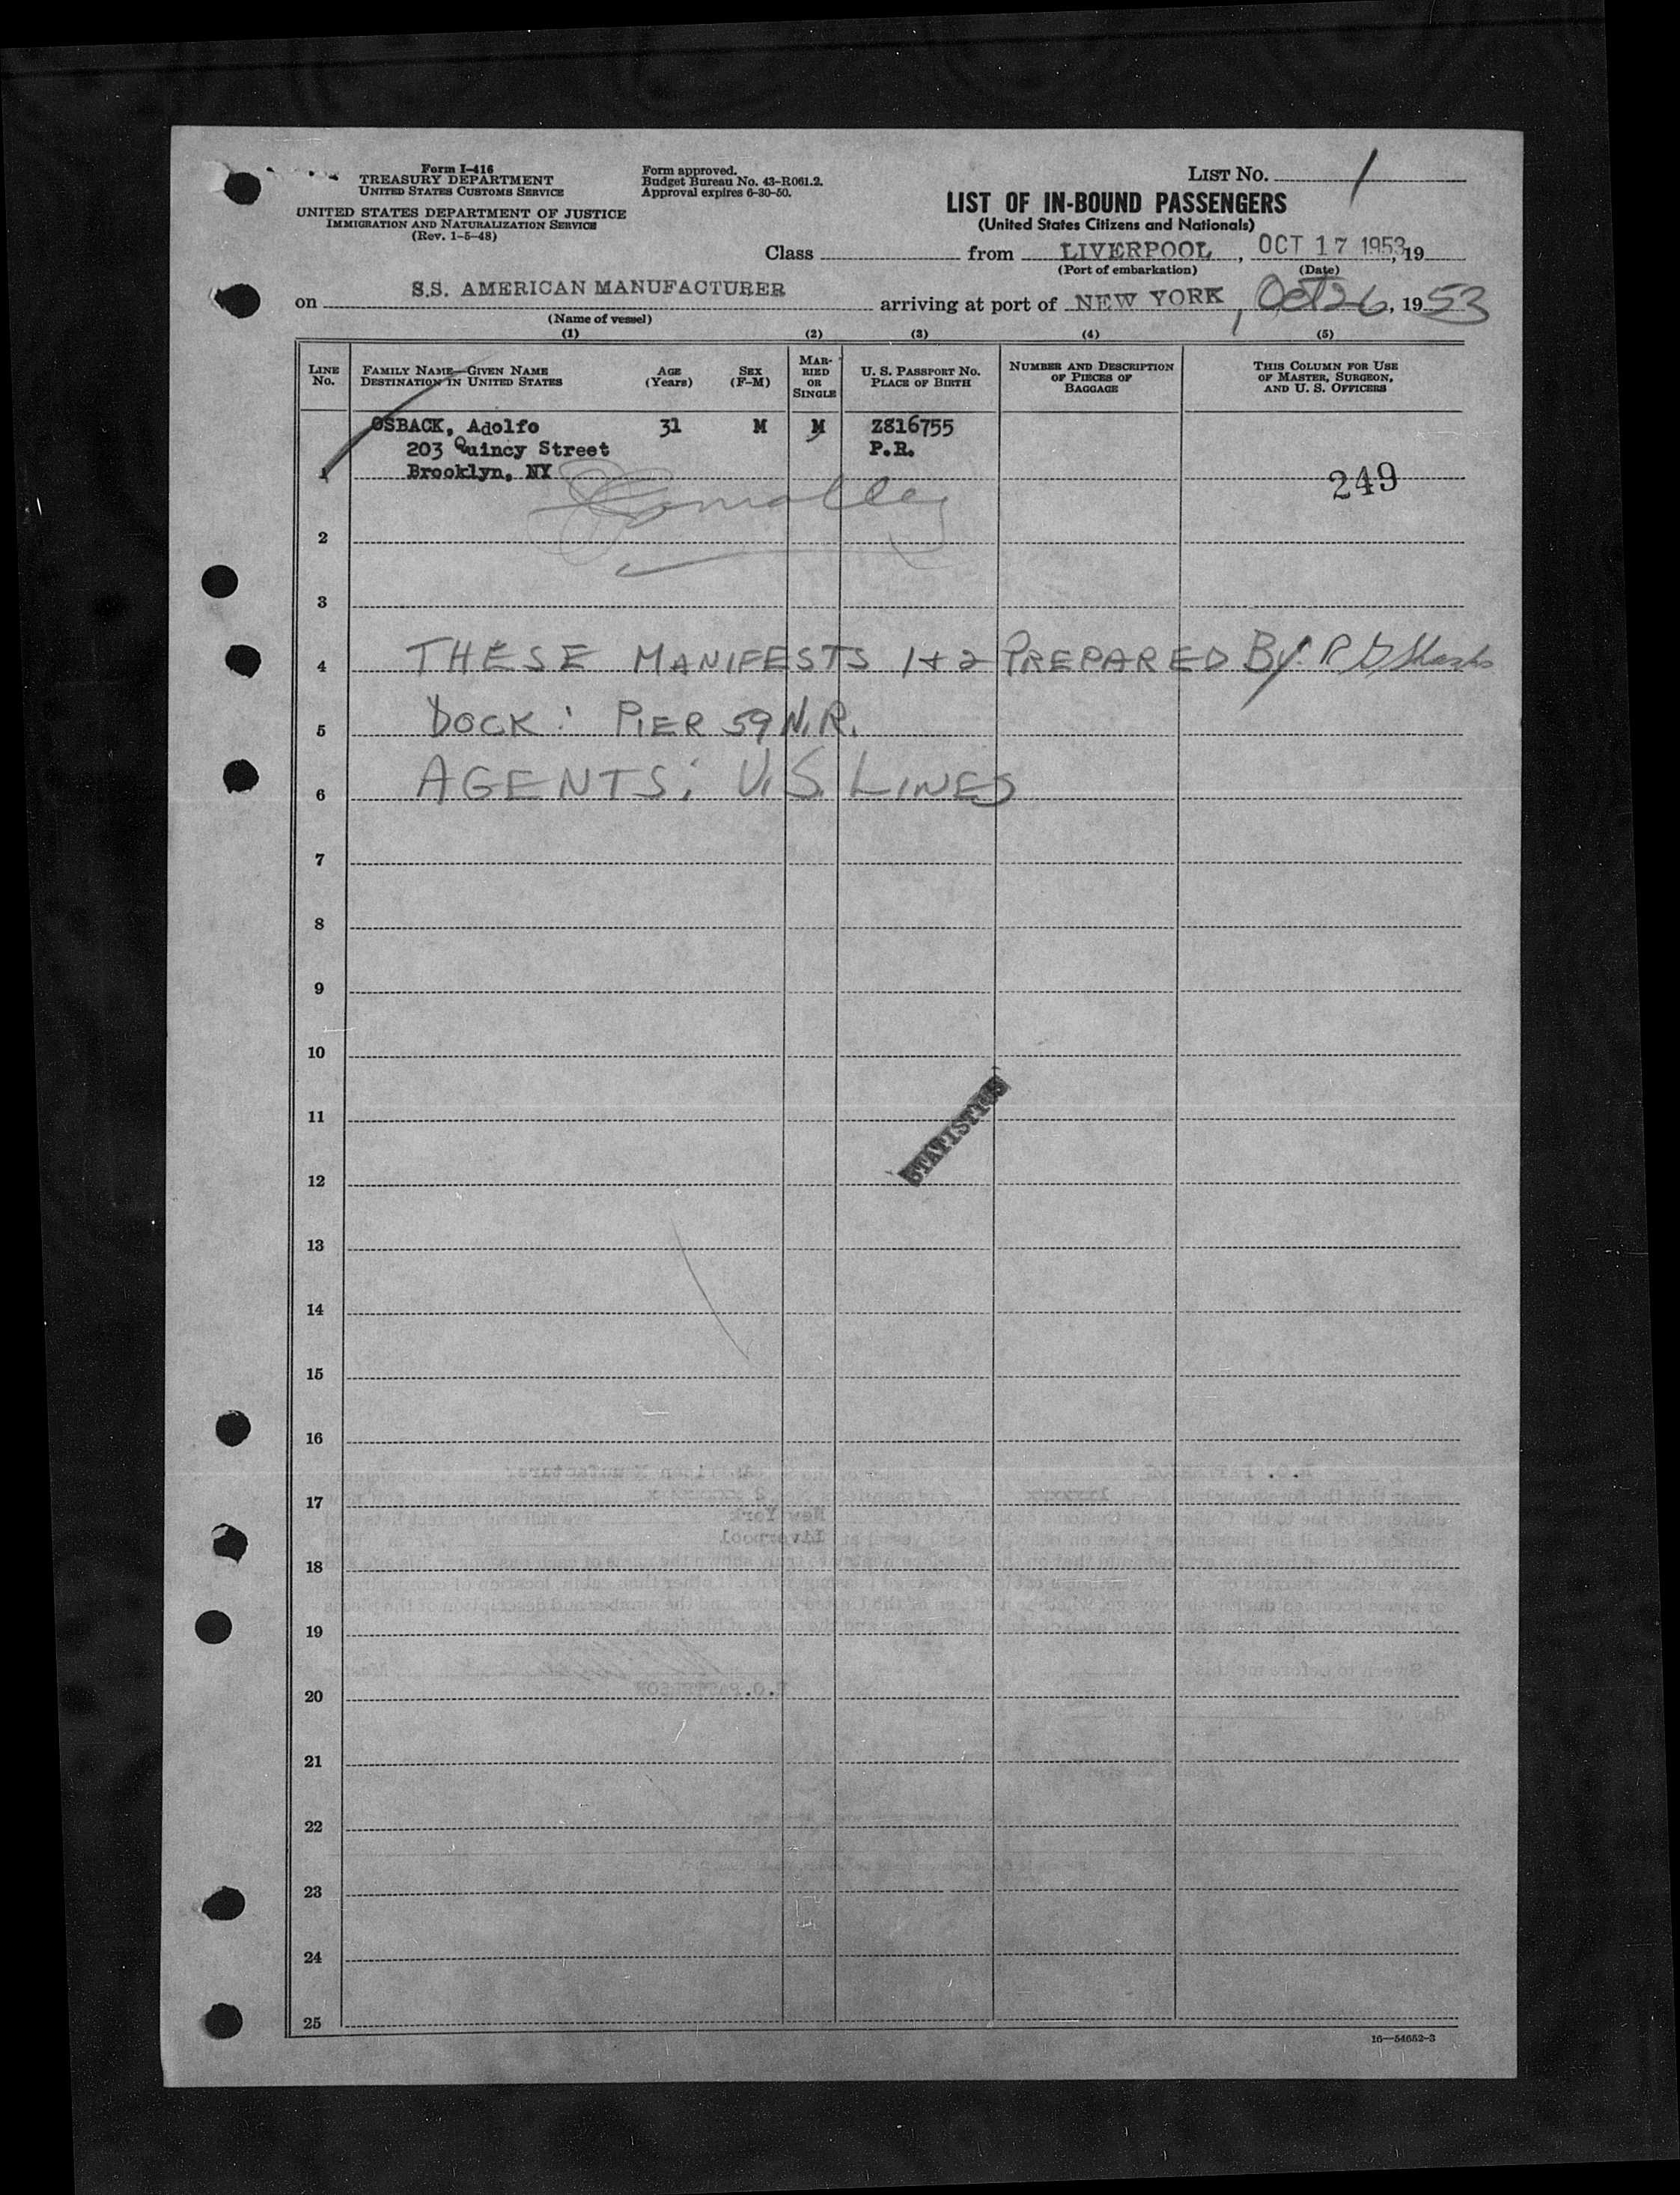 Form I-416
TREASURY DEPARTMENT
UNITED STATES CUSTOMS SERVICE
UNITED STATES DEPARTMENT OF JUSTICE
IMMIGRATION AND NATURALIZATION SERVICE
(Rev. 1-5-48)
Form approved.
Budget Bureau No. 43-R061.2.
Approval expires 6-30-50.
LIST NO. 1
LIST OF IN-BOUND PASSENGERS
(United States Citizens and Nationals)
Class from LIVERPOOL, OCT 17 1953, 19
(Port of embarkation) (Date)
on S.S. AMERICAN MANUFACTURER arriving at port of NEW YORK, Oct 26, 1953
(Name of vessel)
(1) (2) (3) (4) (5)
LINE No.
FAMILY NAME—GIVEN NAME
DESTINATION IN UNITED STATES
AGE
(Years)
SEX
(F-M)
MAR-
RIED
OR
SINGLE
U. S. PASSPORT NO.
PLACE OF BIRTH
NUMBER AND DESCRIPTION
OF PIECES OF
BAGGAGE
THIS COLUMN FOR USE
OF MASTER, SURGEON,
AND U. S. OFFICERS
OSBACK, Adolfo 31 M M Z816755
203 Quincy Street P.R.
1 Brooklyn, NY 249
2
3
4 THESE MANIFESTS 1+2 PREPARED BY
5 DOCK: PIER 59 N.R.
6 AGENTS: U.S. LINES
7
8
9
10
11
STATISTICS
12
13
14
15
16
17
18
19
20
21
22
23
24
25
16—54652-3